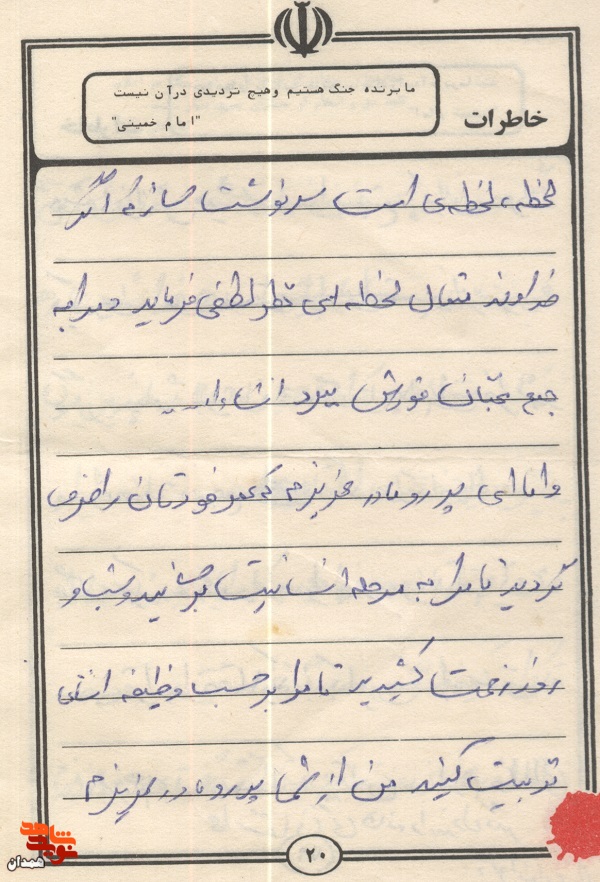 ما برنده جنگ هستیم و هیچ تردیدی در آن نیست
"امام خمینی"
خاطرات
لحظه، لحظه‌ی است سرنوشت ساز که اگر
خداوند متعال لحظه ای نظر لطفی فرماید و مرا به
جمع محبان خودش ببرد انشاءا...
و اما ای پدر و مادر عزیزم که عمر خودتان را صرف
کردید تا مرا به مرحله انسانیت برسانید و شب و
روز زحمت کشیدید تا مرا بر حسب وظیفه انسانی
تربیت کنید من از شما پدر و مادر عزیزم
۲۰
نوید شاهد
همدان